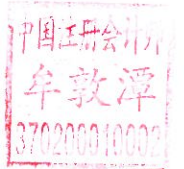 中国注册会计师
牟敦潭
370200010002